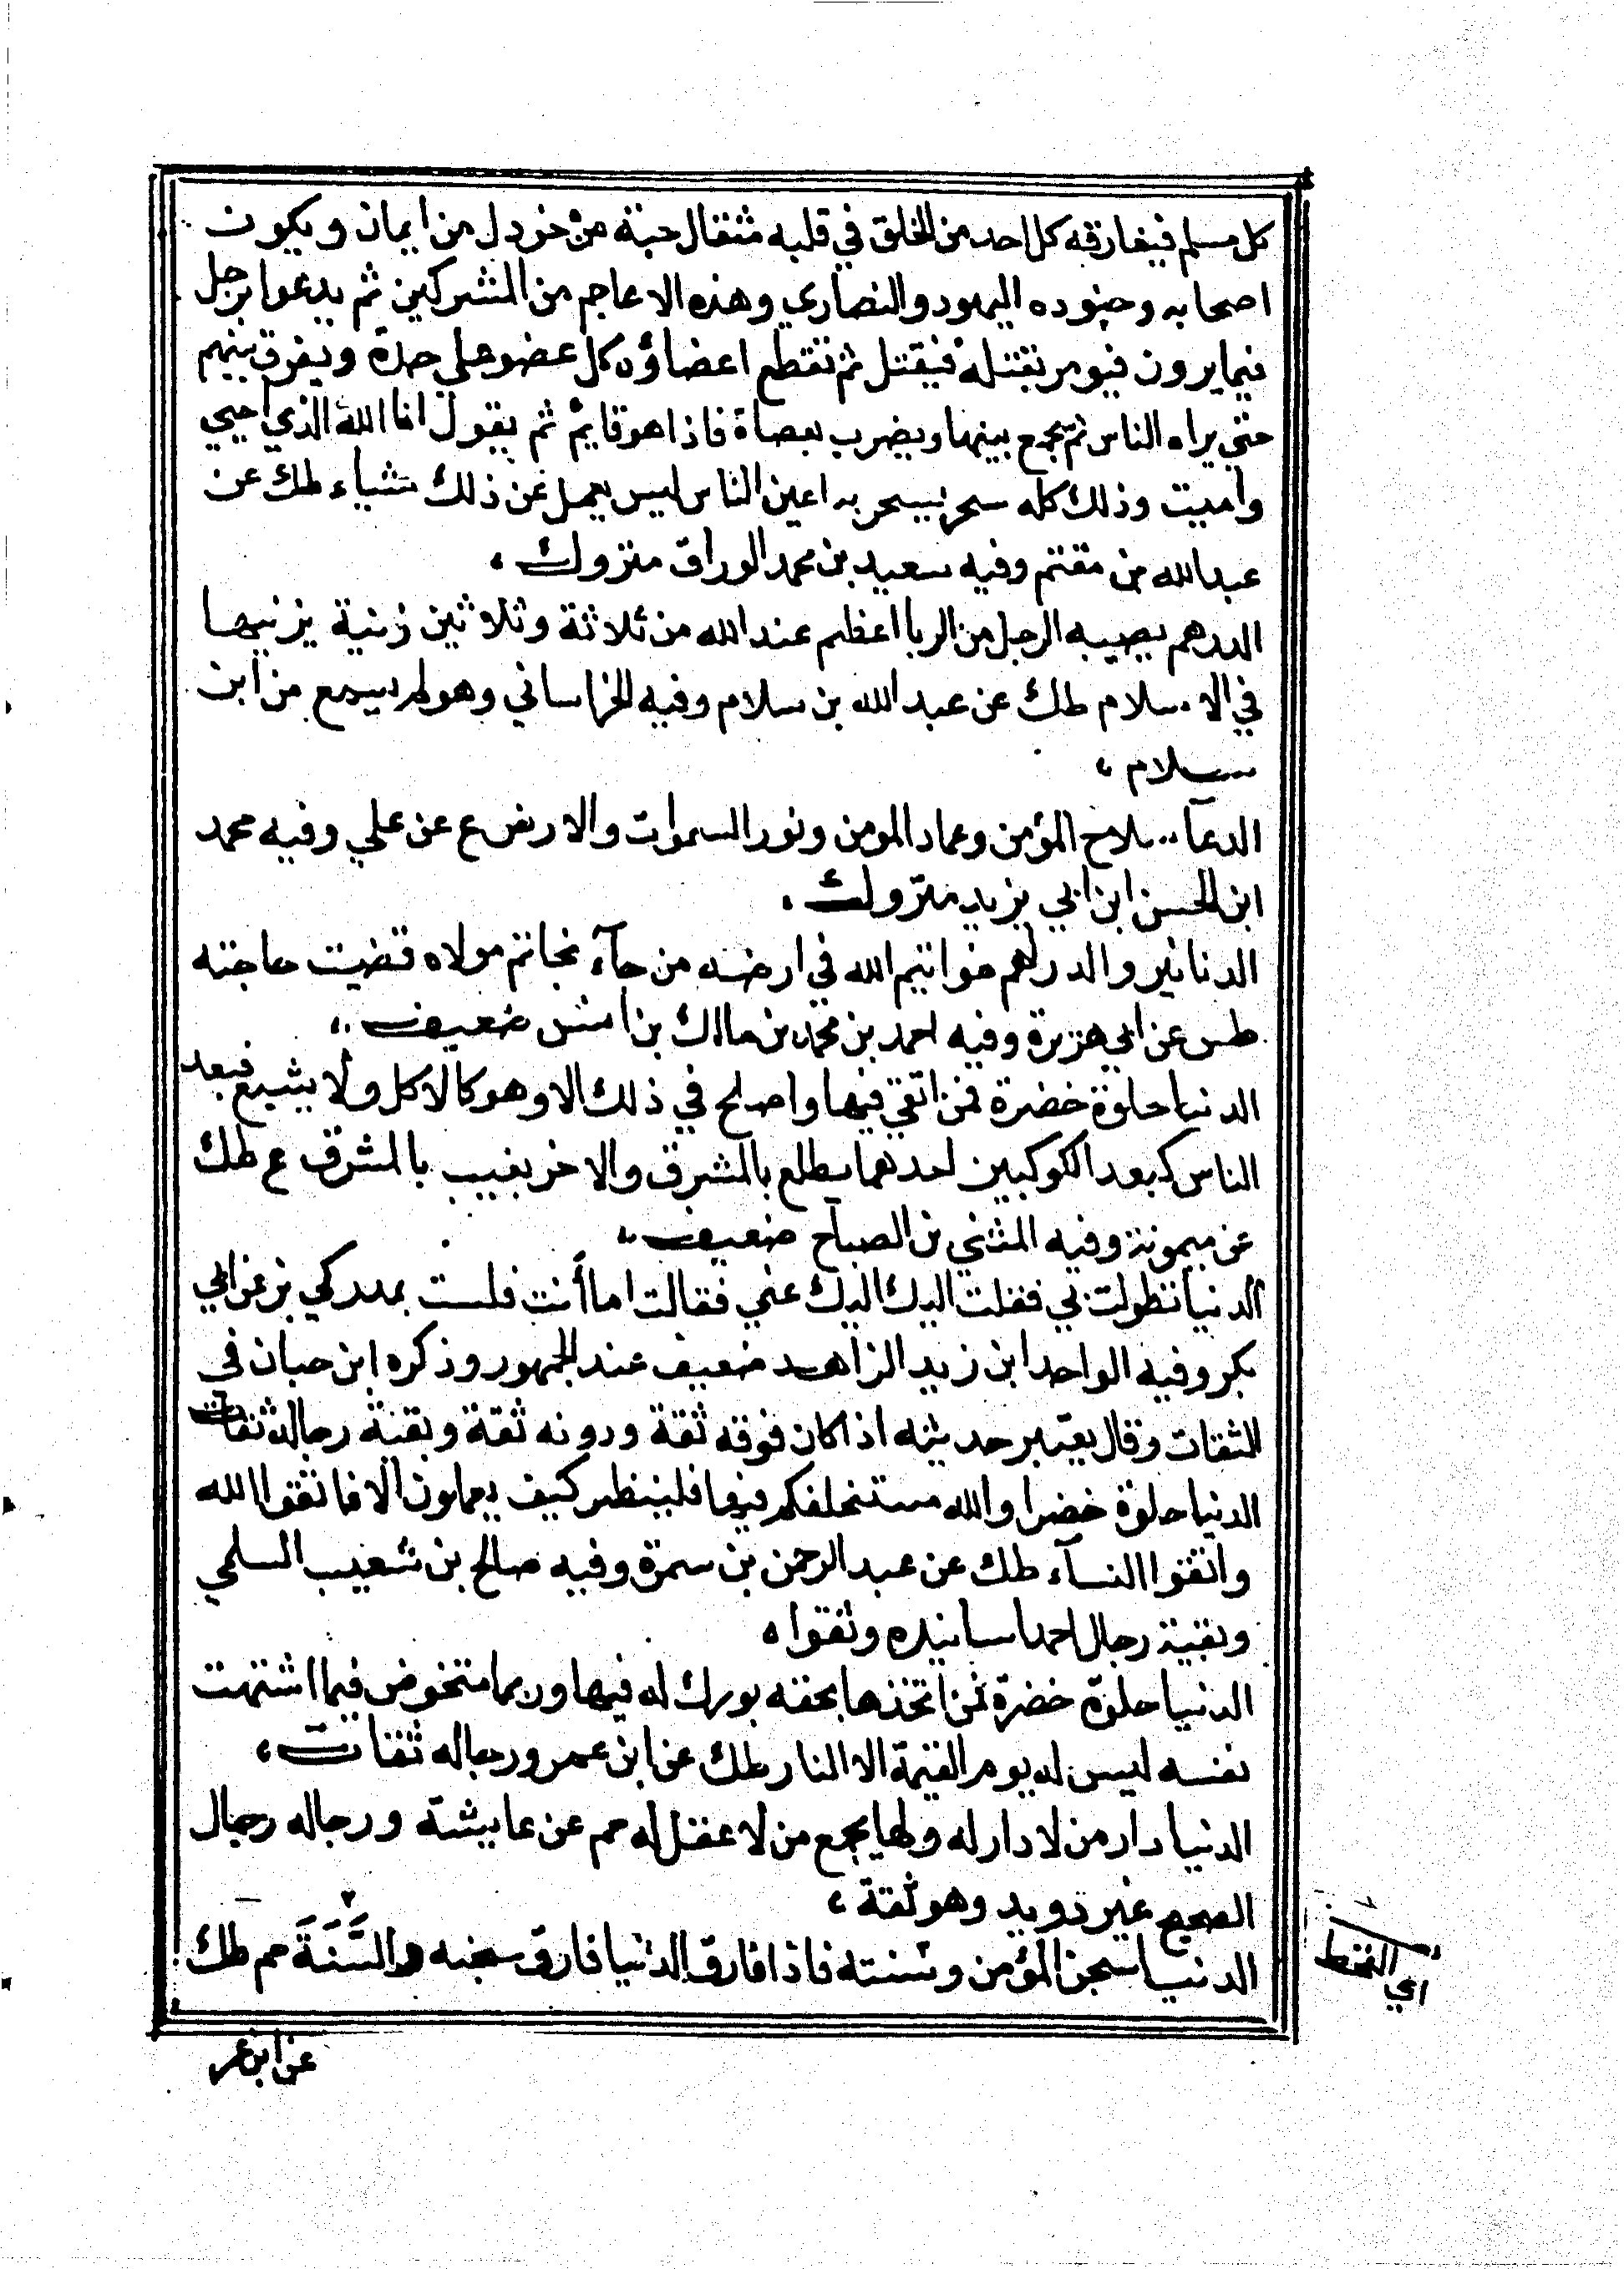 كل مسلم فيفارقه كل احد من الخلق في قلبه مثقال حبة من خردل من ايمان ويكون
اصحابه وجنوده اليهود والنصاري وهذه الاعاجم من المشركين ثم يدعوا برجل
فيما يرون فيومر بقتله فيقتل ثم تقطع اعضاؤه كل عضو على حدة ويفرق بينهم
حتي يراه الناس ثم يجمع بينها ويضرب بعصاة فاذا هو قايم ثم يقول انا الله الذي احيي
واميت وذلك كله سحر يسحر به اعين الناس ليس يعمل من ذلك شياء طك عن
عبدالله بن مقنم وفيه سعيد بن محمد الوراق متروك
الدرهم يصيبه الرجل من الربا اعظم عند الله من ثلاثة وثلاثين زنية يزنيها
في الاسلام طك عن عبد الله بن سلام وفيه الخراساني وهو لم يسمع من ابن
سلام
الدعآ سلاح المؤمن وعماد المومن ونور السموات والارض ع عن علي وفيه محمد
ابن الحسن ابن ابي يزيد متروك
الدنانير والدراهم خواتيم الله في ارضه من جآء بخاتم مولاه قضيت حاجته
طس عن ابي هريرة وفيه احمد بن محمد بن مالك بن انس ضعيف
الدنيا حلوة خضرة فمن اتقي فيها واصلح في ذلك الا وهو كالاكل ولا يشبع فبعد
الناس كبعد الكوكبين احدهما يطلع بالمشرق والاخر يغيب بالمشرق ع طك
عن ميمونة وفيه المثني بن الصباح ضعيف
الدنيا تطولت بي فقلت اليك اليك عني فقالت اما أنت فلست بمدركي بز عن ابي
بكر وفيه الواحد ابن زيد الزاهد ضعيف عند الجمهور وذكره ابن حبان في
الثقات وقال يعتبر حديثه اذا كان فوقه ثقة ودونه ثقة وبقية رجاله ثقات
الدنيا حلوة خضرا والله مستخلفكم فيها فلينظر كيف يعملون الا فاتقوا الله
واتقوا النسآء طك عن عبد الرحمن بن سمرة وفيه صالح بن شعيب السلمي
وبقية رجال احد اسانيده وثقوا
الدنيا حلوة خضرة فمن اتخذها بحقه بورك له فيها ورب متخوض فيما اشتهت
نفسه ليس له يوم القيمة الا النار طك عن ابن عمرو رجاله ثقات
الدنيا دار من لا دار له ولها يجمع من لا عقل له حم عن عايشة ورجاله رجال
الصحيح غير دويد وهو ثقة
الدنيا سجن المؤمن وسنته فاذا فارق الدنيا فارق سجنه والسَّنَةَ حم طك
اي القحط
عن ابن عمر